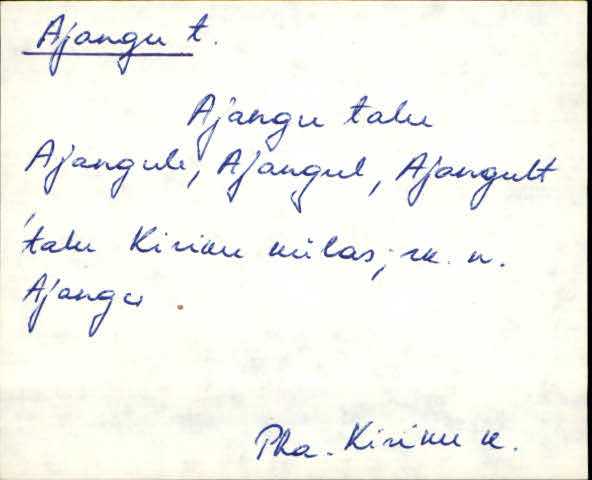 Ajangu t.
Ajangu talu
Ajangule, Ajangul, Ajangult
talu Kiriku külas; rk. n.
Ajangu.
Pha. Kiriku k.